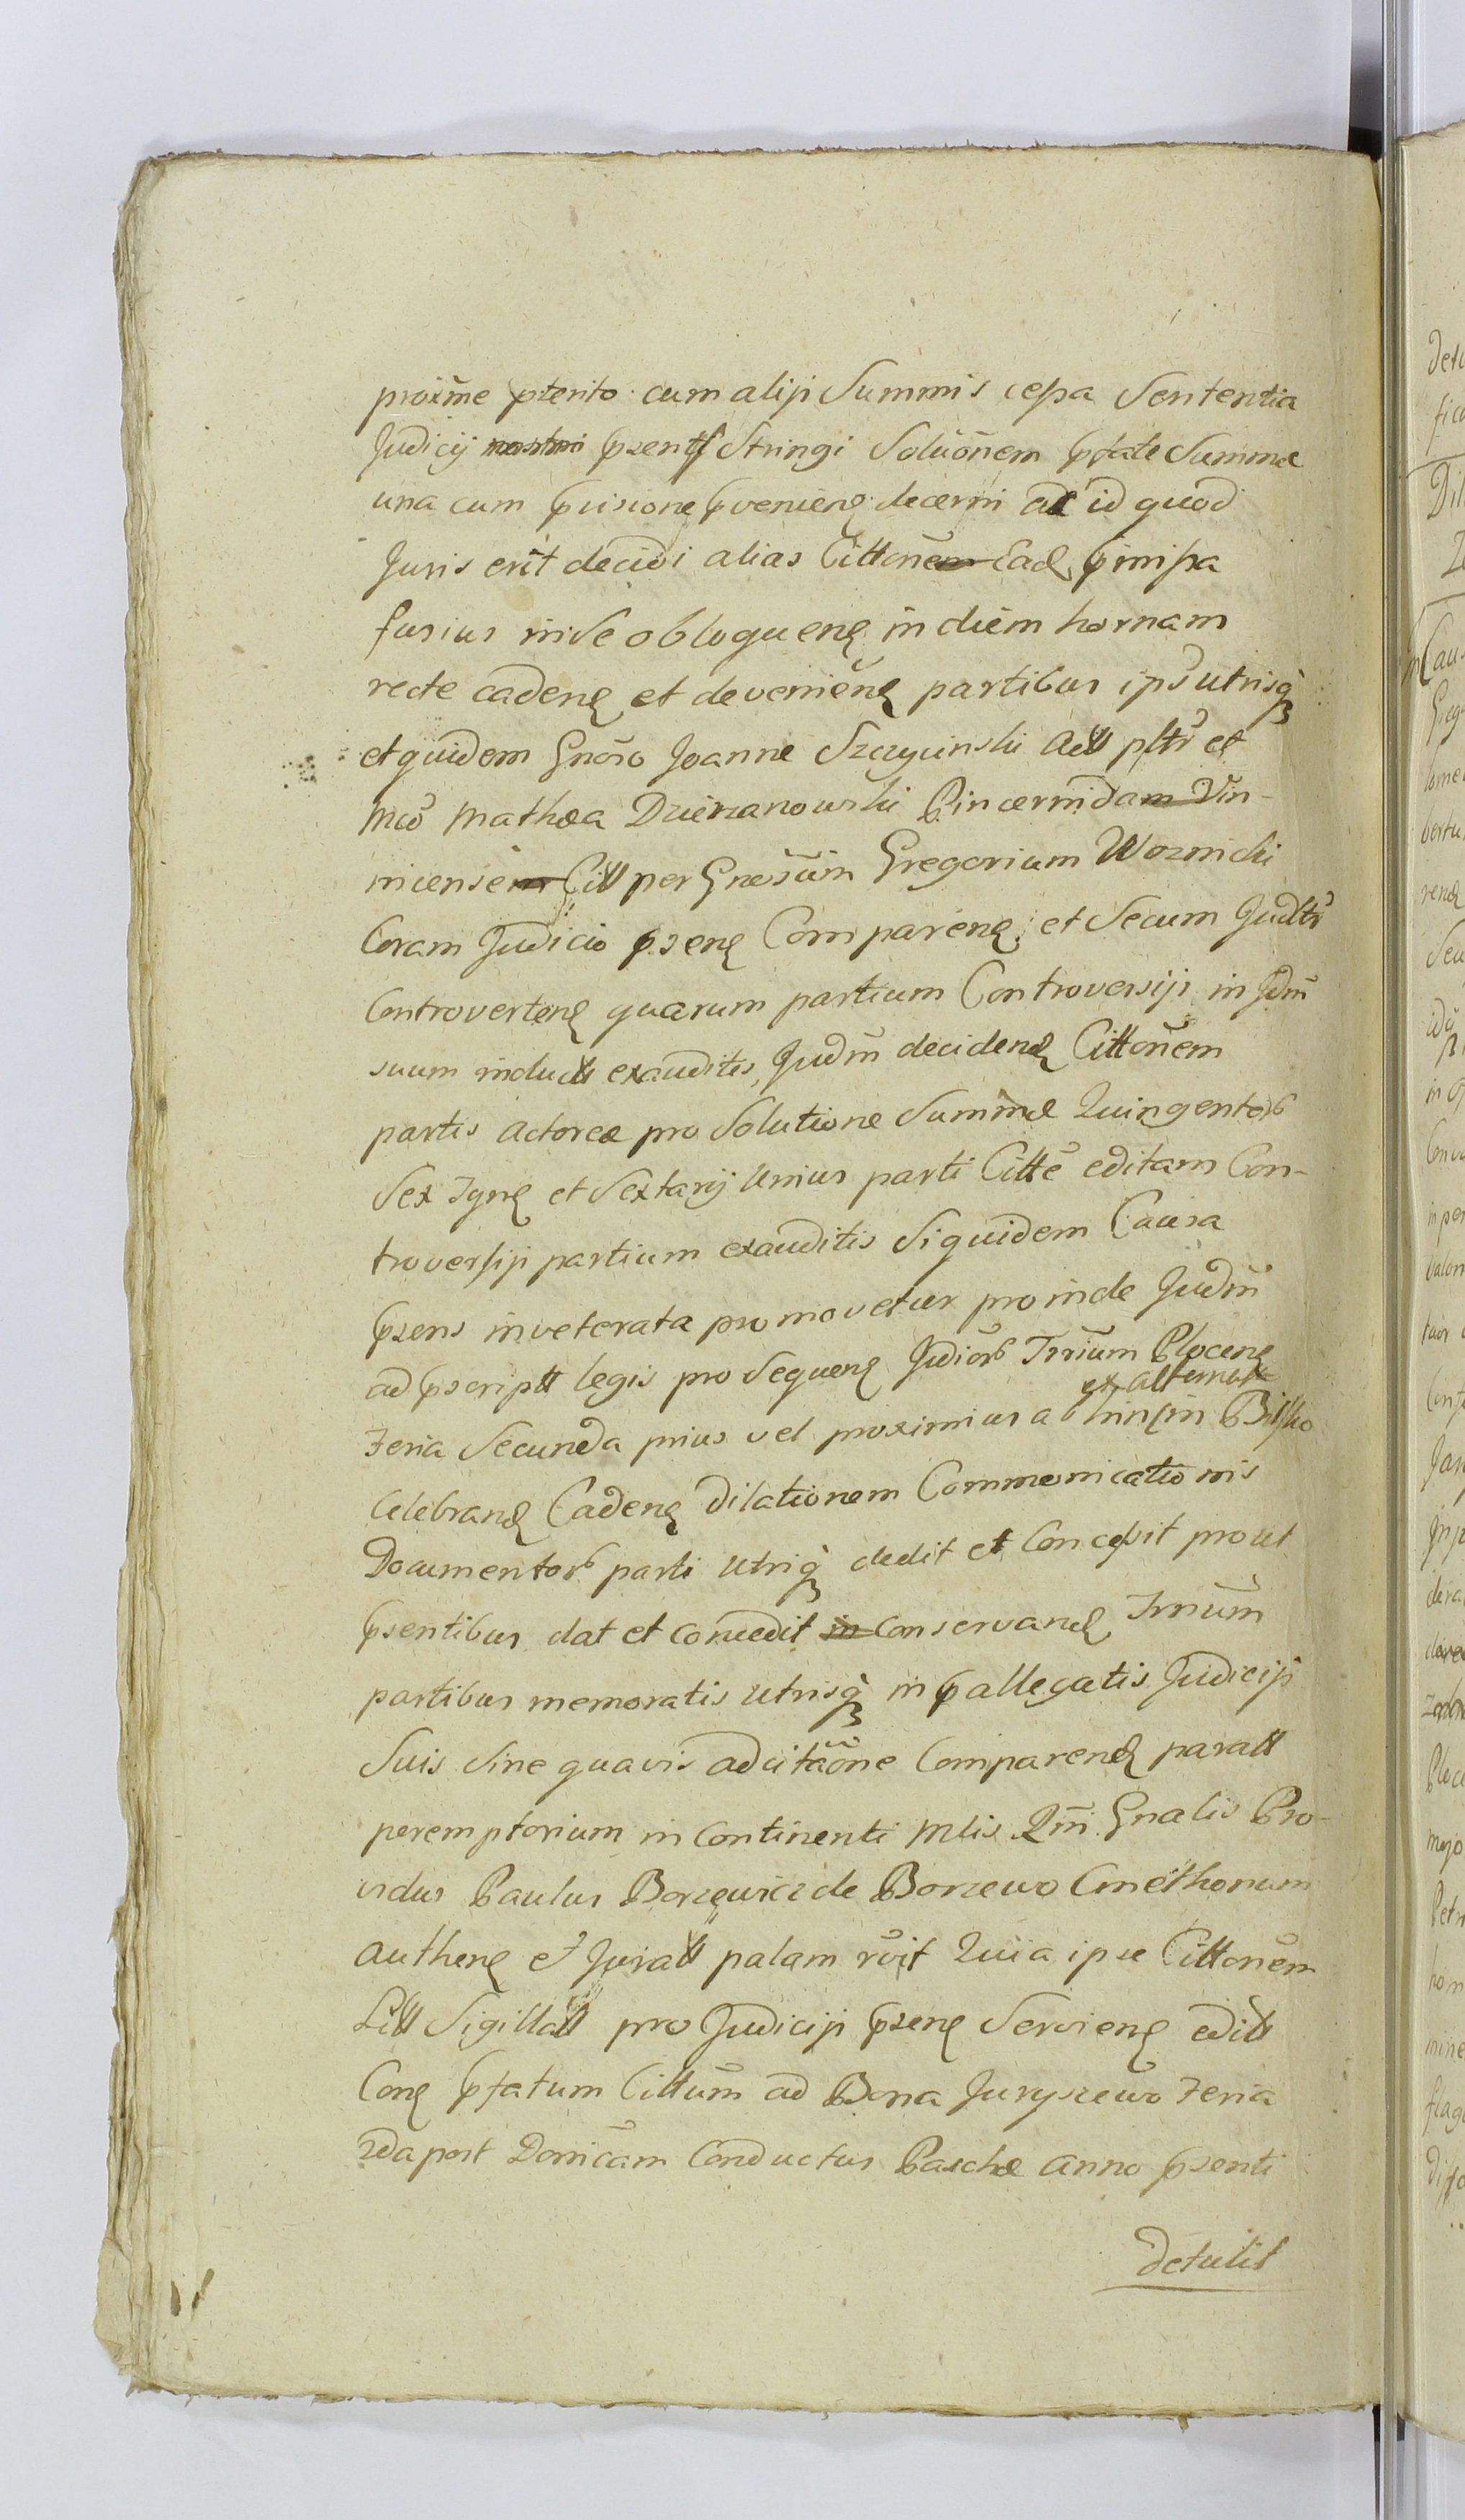 proxĩme pterito cum alijs Summis cessa Sententia
Judicij nostri psentj Stringi Solũõnem pfatæ Summæ
una cum pvisione pvenienē decerni ac id quod
Juris erit decidi alias Cittonẽm Eadē pmissa
fusius in se obloquenē in diem hornam
recte cadenē et devenienē partibus ips utrisq
et quidem Gnõso Joanne Szczycinski Actt pltr et
Mco Mathæa Dzierzanowski Pincernidam Vin-
nicensem Citt per Gnosũm Gregorium Woznicki
Coram Judicio psenē Comparenē et Secum Judltr
Controvertenē quarum partium Controversijs in Jdm̃
suum inductt exauditis, Judm̃ decidendē Cittonẽm
partis Actoreæ pro Solutione Summæ Quingentorb
Sex Tynē et Sextarij Unius parti Cittẽ editam Con-
troversijs partium exauditis Siquidem Causa
psens inveterata promovetur proinde Judm̃
ad pscriptt legis pro Sequenē Jdiorb Trrium Plocenē
ex alternatt
Feria Secunda prius vel proximius a b hinc in Bilsko
Celebranē Cadenē Dilationem Communicationis
Documentorb parti Utriq dedit et Concessit prout
psentibus dat et concedit in Conservanē Trnũm
partibus memoratis Utrisq in pallegatis Judicijs
Suis Sine quavis adcitaõne Comparenē paratt
peremptorium in Continenti Mlis Rm̃ Gnalis Pro-
vidus Paulus Borzewicz de Borzewo Cmethonum
Authenē et Juratt palam rõit Quia ipse Cittonẽm
Litt Sigillatt pro Judicijs psenē Servienē editt
Conē pfatum Cittũm ad Bona Juryszewo Feria
2da post Domĩcam Conductus Paschæ Anno psenti
detulit